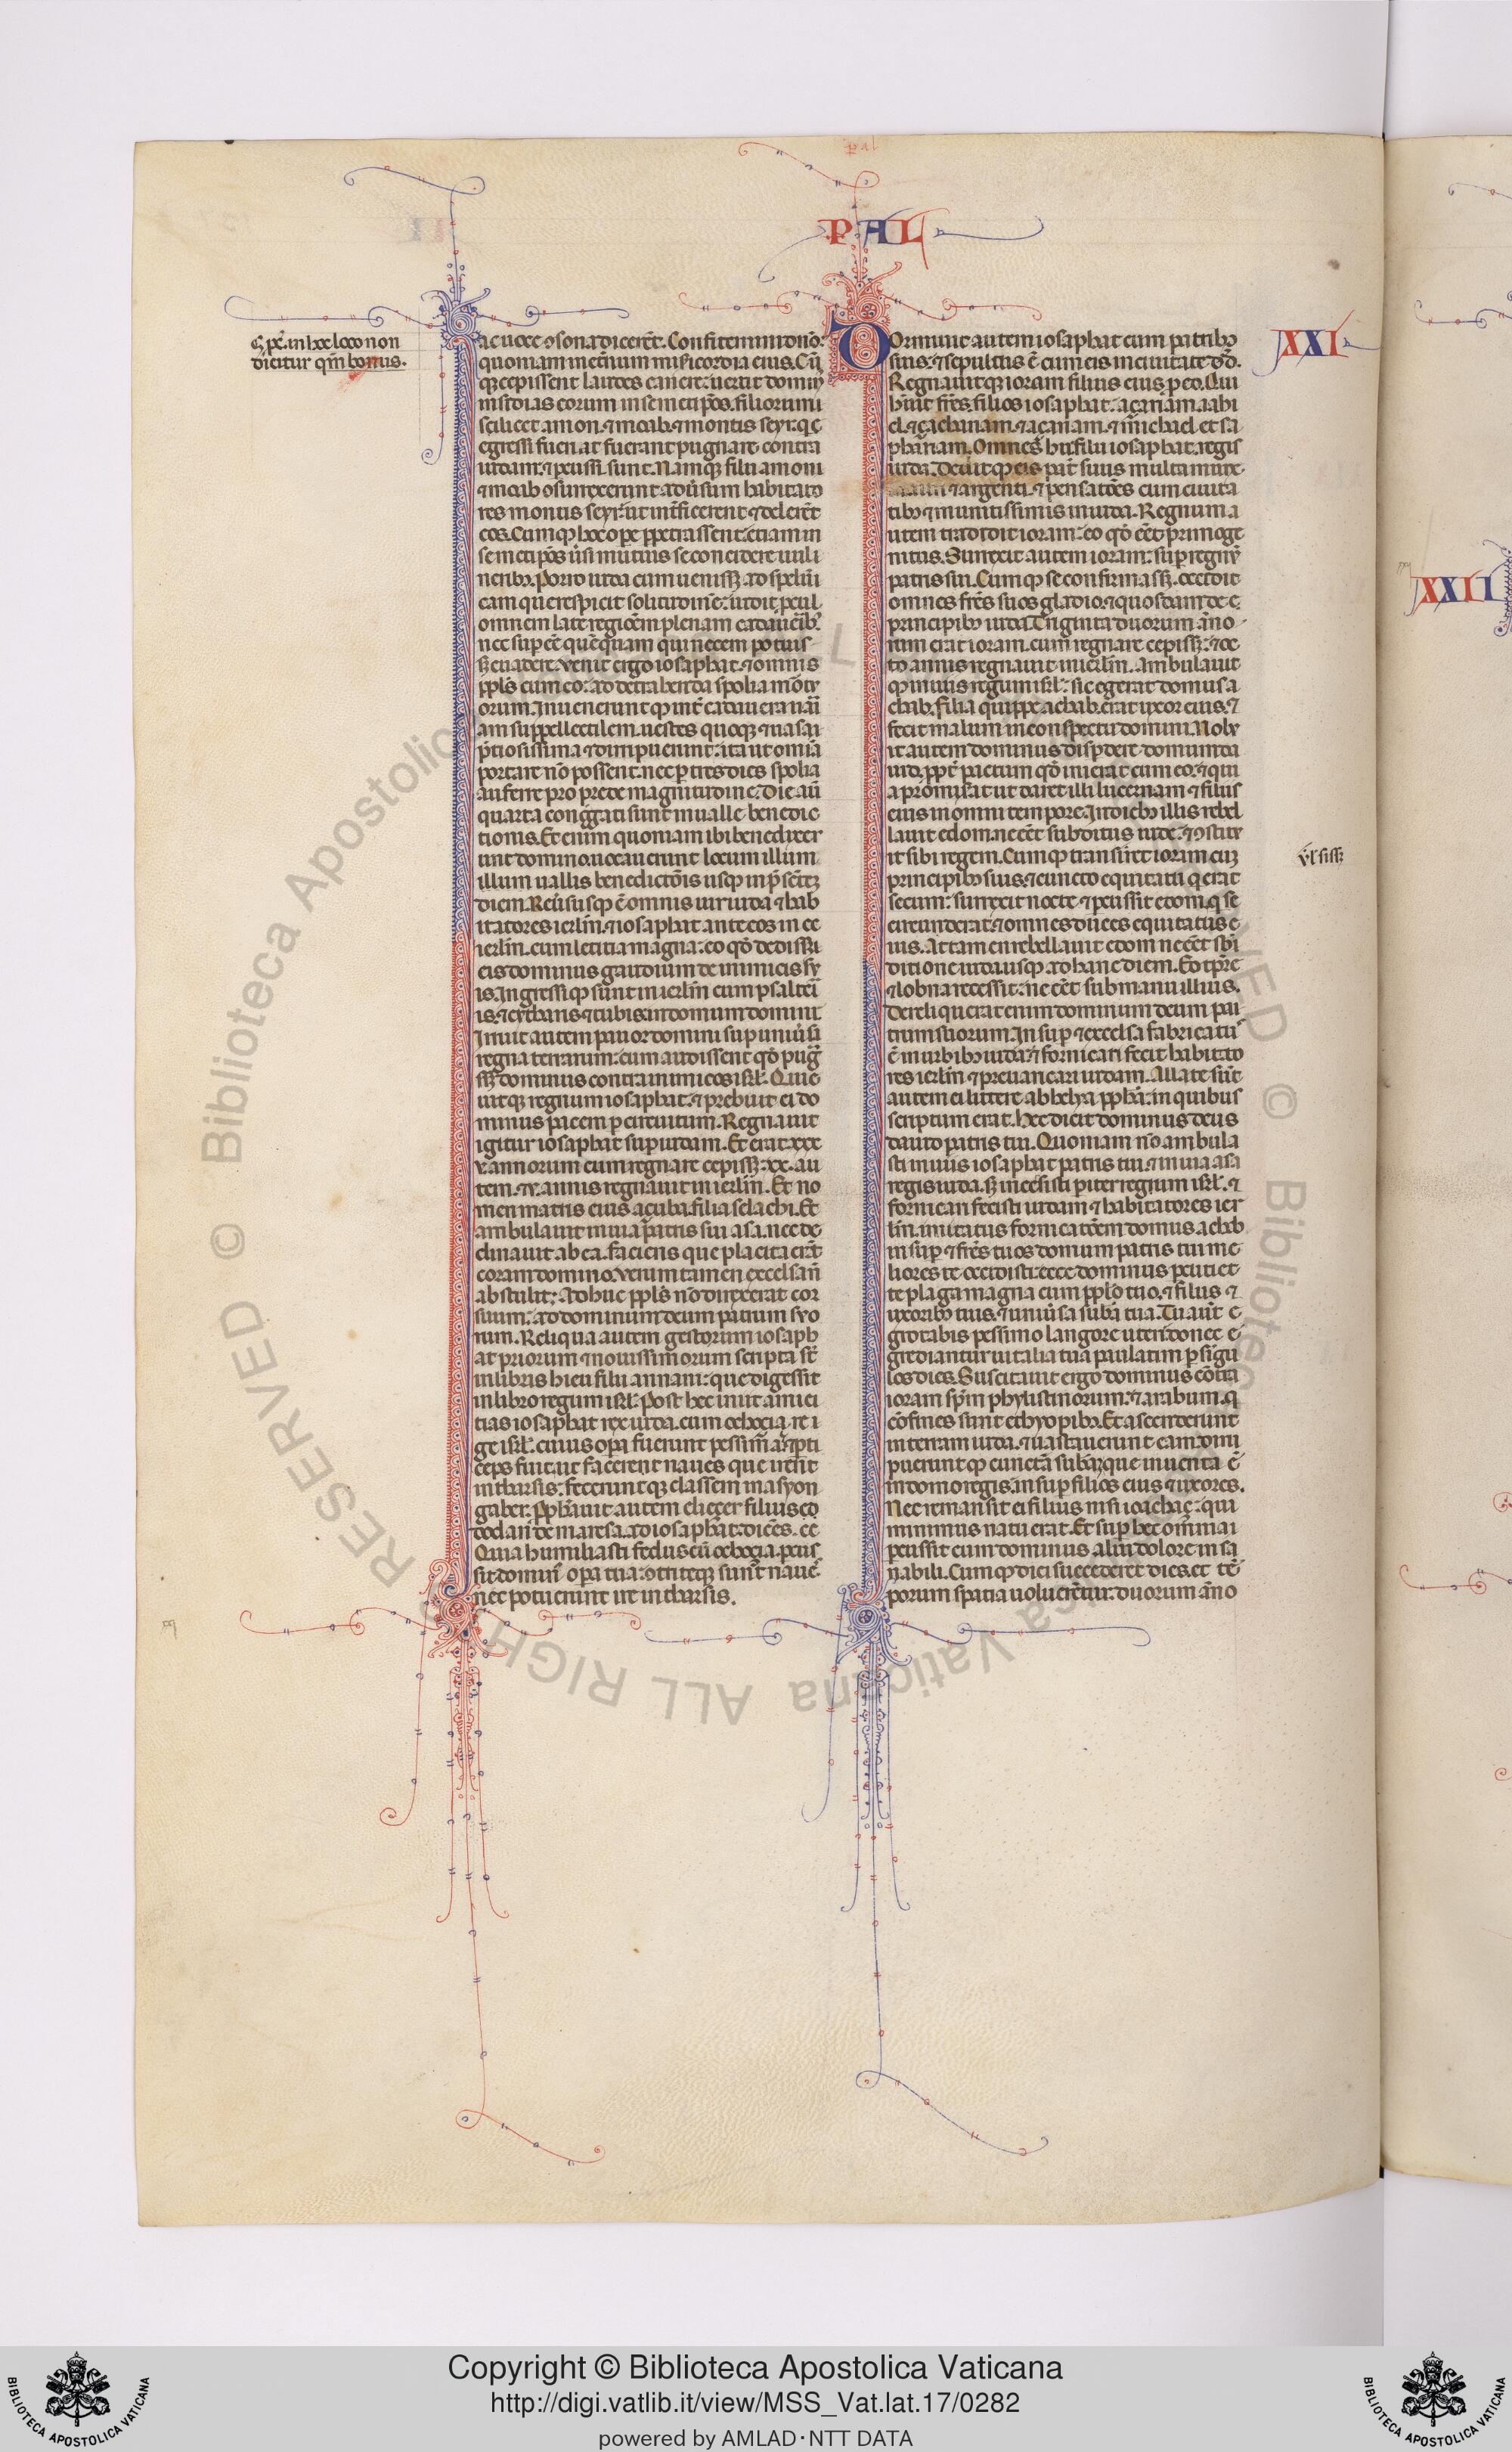 pal
PAL
ac uoce ɔsona dicerēt. Confitemini dnō:
quoniam in eternum misericordia eius. Cū
qꝫ cepissent laudes canere: uertit dominꝰ
insidias eorum in semetipōs. filiorum
scilicet amon. ⁊ moab. ⁊ montis seyr. q̄
egressi fuerāt
pugnare contra
iudam: ⁊ pcussi sunt. Namqꝫ filii amon
⁊ moab ɔsurrexerunt adūsum habitato
res montis seyr: ut int̄ficerent ⁊ delerēt
eos. Cumqꝫ hoc ope ppetrassent: etiam in
semetipōs ūsi mutuis se concidere uuli
neribꝫ. Porro iuda cum uenissꝫ ad spelūi
cam que respicit solitudinē: uidit pcul
omnem late regiōem plenam cadauerib̄
nec supesse quēquam qui necem potuis
sꝫ euadere. venit ergo iosaphat. ⁊ omnis
ppls cum eo: ad detrahenda spolia mortu
orum. Inueneruntqꝫ int̄ cadauera uari
am suppellectilem. uestes quoqꝫ ⁊ uasa
p̄tiosissima ⁊ diripuerunt: ita ut omīa
portare nō possent. nec p tres dies spolia
auferre pro prede magnitudine. Die aū
quarta conḡgati sunt in ualle benedic
tionis. Etenim quoniam ibi benedixer
unt domino. uocauerunt locum illum
illum uallis benedictōis usqꝫ in p̄sentē
diem. Reūsusqꝫ ē omnis uir iuda ⁊ hab
itatores ierlm̄. ⁊ iosaphat ante eos in ee
ierlm̄. cum letitia magna: eo qd̄ dedissꝫ
eis dominus gaudium de inimicis su
is. Ingressiqꝫ sunt in ierlm̄ cum psalteri
is. ⁊ cytharis ⁊ tubis. in domum domini
Inuit autem pauor domini sup uniūsa
regna terrarum: cum audissent qd̄ pug̃
ssꝫ dominus contra inimicos isrl̄. Quie
uitqꝫ regnum iosaphat. ⁊ prebuit ei do
minus pacem p circuitum. Regnauit
igitur iosaphat sup iudam. Et erat xxx
v. annorum cum regnare cepissꝫ. xx. au
tem. ⁊ v. annis regnauit in ierlm̄. Et no
men matris eius açuba. filia selachi. Et
ambulauit in uia patris sui asa. nec de
clinauit ab ea. faciens que placita erāt
coram domino. verum tamen excelsa nō
abstulit: Adhuc ppls nō direxerat cor
suum: ad dominum deum patrum suo
rum. Reliqua autem gestorum iosaph
at priorum ⁊ nouissimorum scripta sūt
in libris hieu filii annani: que digessit
in libro regum isrl̄. Post hec iniit amici
tias iosaphat rex iuda. cum ochoçia. re
ge isrl̄. cuius opa fuerunt pessima. ⁊ pti
ceps fuit. ut facerent naues que irent
in tharsis: feceruntqꝫ classem in asyon
gaber. Pphauit autem elieçer filius do
dodan de maresa. ad iosaphat: dicēs.
Quia humiliasti fedus cū ochoçia. pcus
sit dominꝰ opa tua: ɔtriteqꝫ sunt naues
nec potuerunt ire in tharsis.
in hoc loco non
dicitur qm̄ bonus.
XXI
Dormiuit autem iosaphat cum patribꝫ
suis: ⁊ sepultus ē cum eis in ciuitate dd̄.
Regnauitqꝫ ioram filius eius p eo. Qui
habuit fr̄es. filios iosaphat. açariam. iahi
el. ⁊ çachariam. ⁊ açariam. ⁊ michael. et sa
phatiam. Omnes hii. filii iosaphat. regis
iuda. Deditqꝫ eis pat̄ suus multa mune
⁊ argenti. ⁊ pensatōes cum ciuita
tibꝫ ⁊ munitissimis in iuda. Regnum a
utem tradidit ioram: eo qd̄ eēt primoge
nitus. Surrexit autem ioram: sup regnū
patris sui. Cumqꝫ se confirmassꝫ. occidit
omnes fr̄es suos gladio. ⁊ quosdam de
principibꝫ iuda. Triginta duorum anno
rum erat ioram. cum regnare cepissꝫ. ⁊ oc
to annis regnauit in ierlm̄. Ambulauit
qꝫ in uiis regum isrl̄: sic egerat domus a
chab. filia quippe achab. erat uxor eius. ⁊
fecit malum in conspectu domini. Nolu
it autem dominus dispdere domum da
uid. ppt̄ pactum qd̄ inierat cum eo. ⁊ qui
a promisat ut daret illi lucernam ⁊ filiis
eius in omni tempore. In diebꝫ illis rebel
lauit edom. ne eēt subditus iude. ⁊ ɔstitu
it sibi regem. Cumqꝫ transiret ioram cuꝫ
principibꝫ suis. ⁊ cuncto equitatu q erat
secum: surrexit nocte. ⁊ pcussit edom. q se
circundederat. ⁊ omnes duces equitatus e
ius. Attamen rebellauit edom ne eēt sb̄
ditione iuda. usqꝫ ad hanc diem. Eo tpre
⁊ lobna recessit: ne eēt sub manu illius.
Dereliquerat enim dominum deum pa
trum suorum. Insup ⁊ excelsa fabricatus
ē in urbibꝫ iuda: ⁊ fornicari fecit habitato
res ierlm̄. ⁊ preuaricari iudam. Allate sūt
autem ei littere ab helya ppha: in quibus
scriptum erat. Hec dicit dominus deus
dauid patris tui. Quoniam nō ambula
sti in uiis iosaphat patris tui. ⁊ in uia asa
regis iuda. sꝫ incessisti p iter regum isrl̄. ⁊
fornicari fecisti iudam ⁊ habitatores ier
lm̄. imitatus fornicatōem domus achab
insup ⁊ fr̄es tuos domum patris tui me
liores te occidisti: ecce dominus pcutiet
te plaga magna cum pplo tuo. ⁊ filiis ⁊
uxoribꝫ tuis. ⁊ uniūsa subā tua. Tu aut̄ e
grotabis pessimo langore uteri donec e
grediantur uitalia tua paulatim p singu
los dies. Suscitauit ergo dominus cōtra
ioram sp̄m phylistinorum. ⁊ arabum. q
cōfines sunt ethyopibꝫ. Et ascenderunt
in terram iuda. ⁊ uastauerunt eam: diri
pueruntqꝫ cunctā subāꝫ que inuenta ē
in domo regis. insup filios eius ⁊ uxores.
Nec remansit ei filius nisi ioachaç: qui
minimus natu erat. Et sup hec om̄ia
pcussit eum dominus alui dolore insa
nabili. Cumqꝫ diei succederet dies. et tē
porum spatia uoluerētur: duorum āno
XXII
Copyright © Biblioteca Apostolica Vaticana
http://digi.vatlib.it/view/MSS_Vat.lat.17/0282
powered by AMLAD·NTT DATA
BIBLIOTECA APOSTOLICA VATICANA
BIBLIOTECA APOSTOLICA VATICANA
© Biblioteca Apostolica Vaticana ALL RIGHTS RESERVED